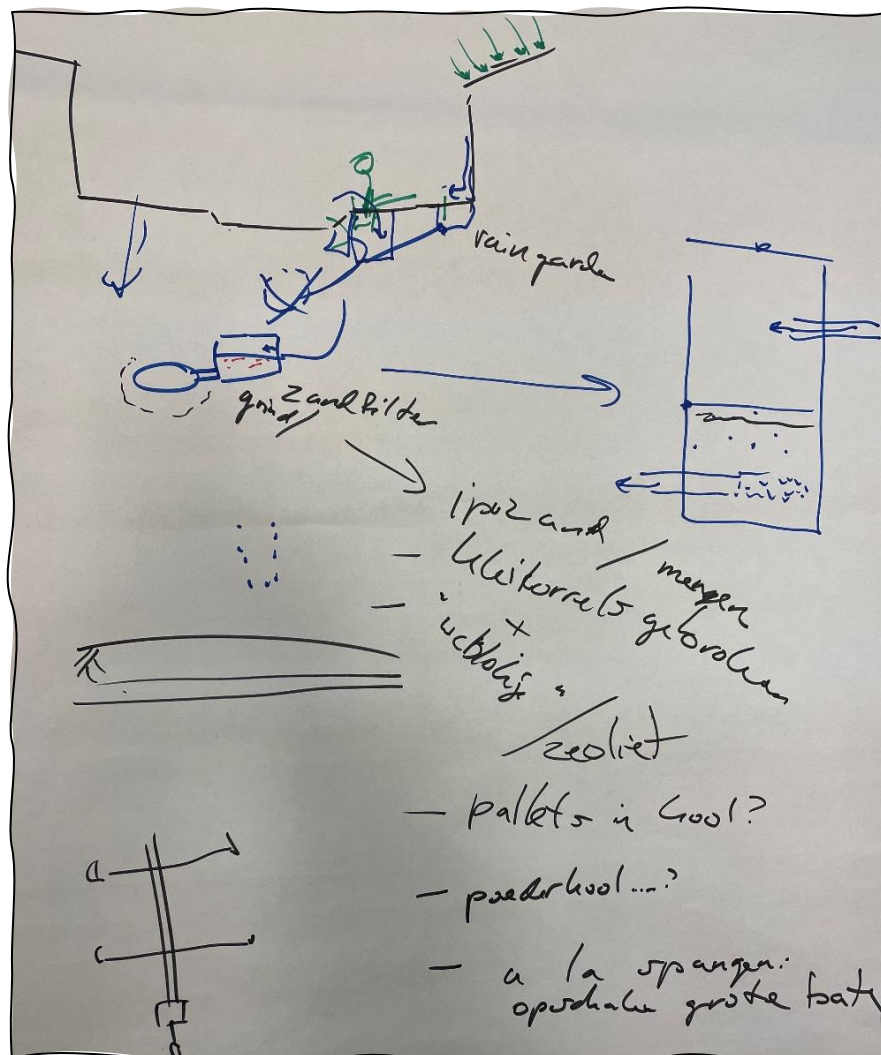 rain garden
grind/zandfilter
zand / mengen
- kleikorrels gebroken
+
/zeoliet
- pallets in kool?
- poederkool....?
- a la spangen:
opschalen grote